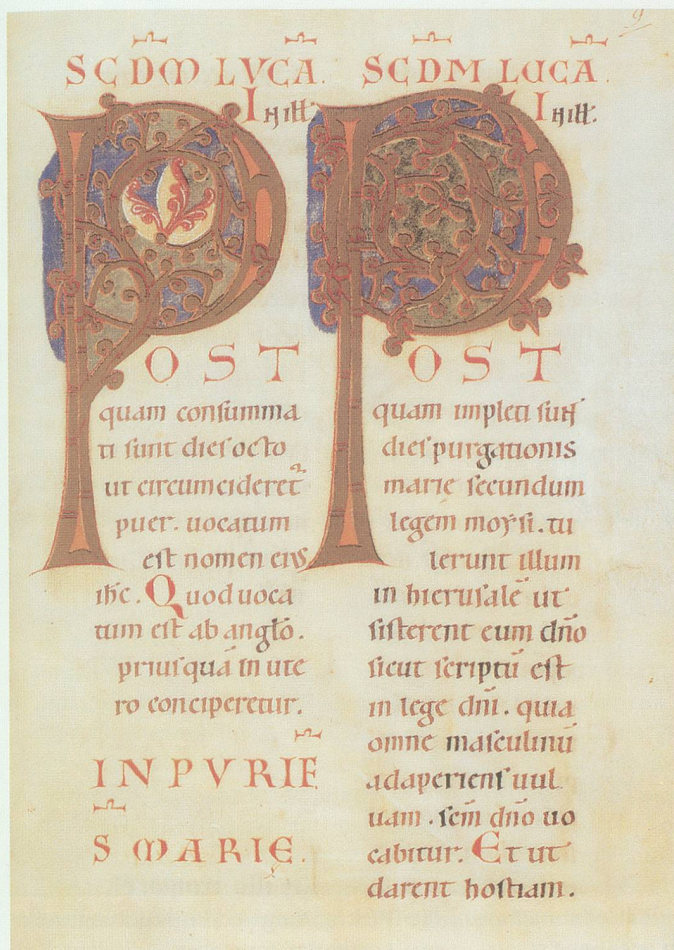 SCDM LVCA.
In illt.
POST
quam consumma
ti sunt dies octo
ut circumcideret̄
puer. uocatum
est nomen eius
ihc. Quod uoca
tum est ab anglo.
priusquā in ute
ro conciperetur.
IN PVRIF
S MARIĘ.
SCDM LUCA.
In illt.
POST
quam impleti sunt
dies purgationis
marie secundum
legem moysi. tu
lerunt illum
in hierusalē ut
sisterent eum dn̄o
sicut scriptū est
in lege dn̄i. quia
omne masculinū
adaperiens uul
uam. scm̄ dn̄o uo
cabitur. Et ut
darent hostiam.